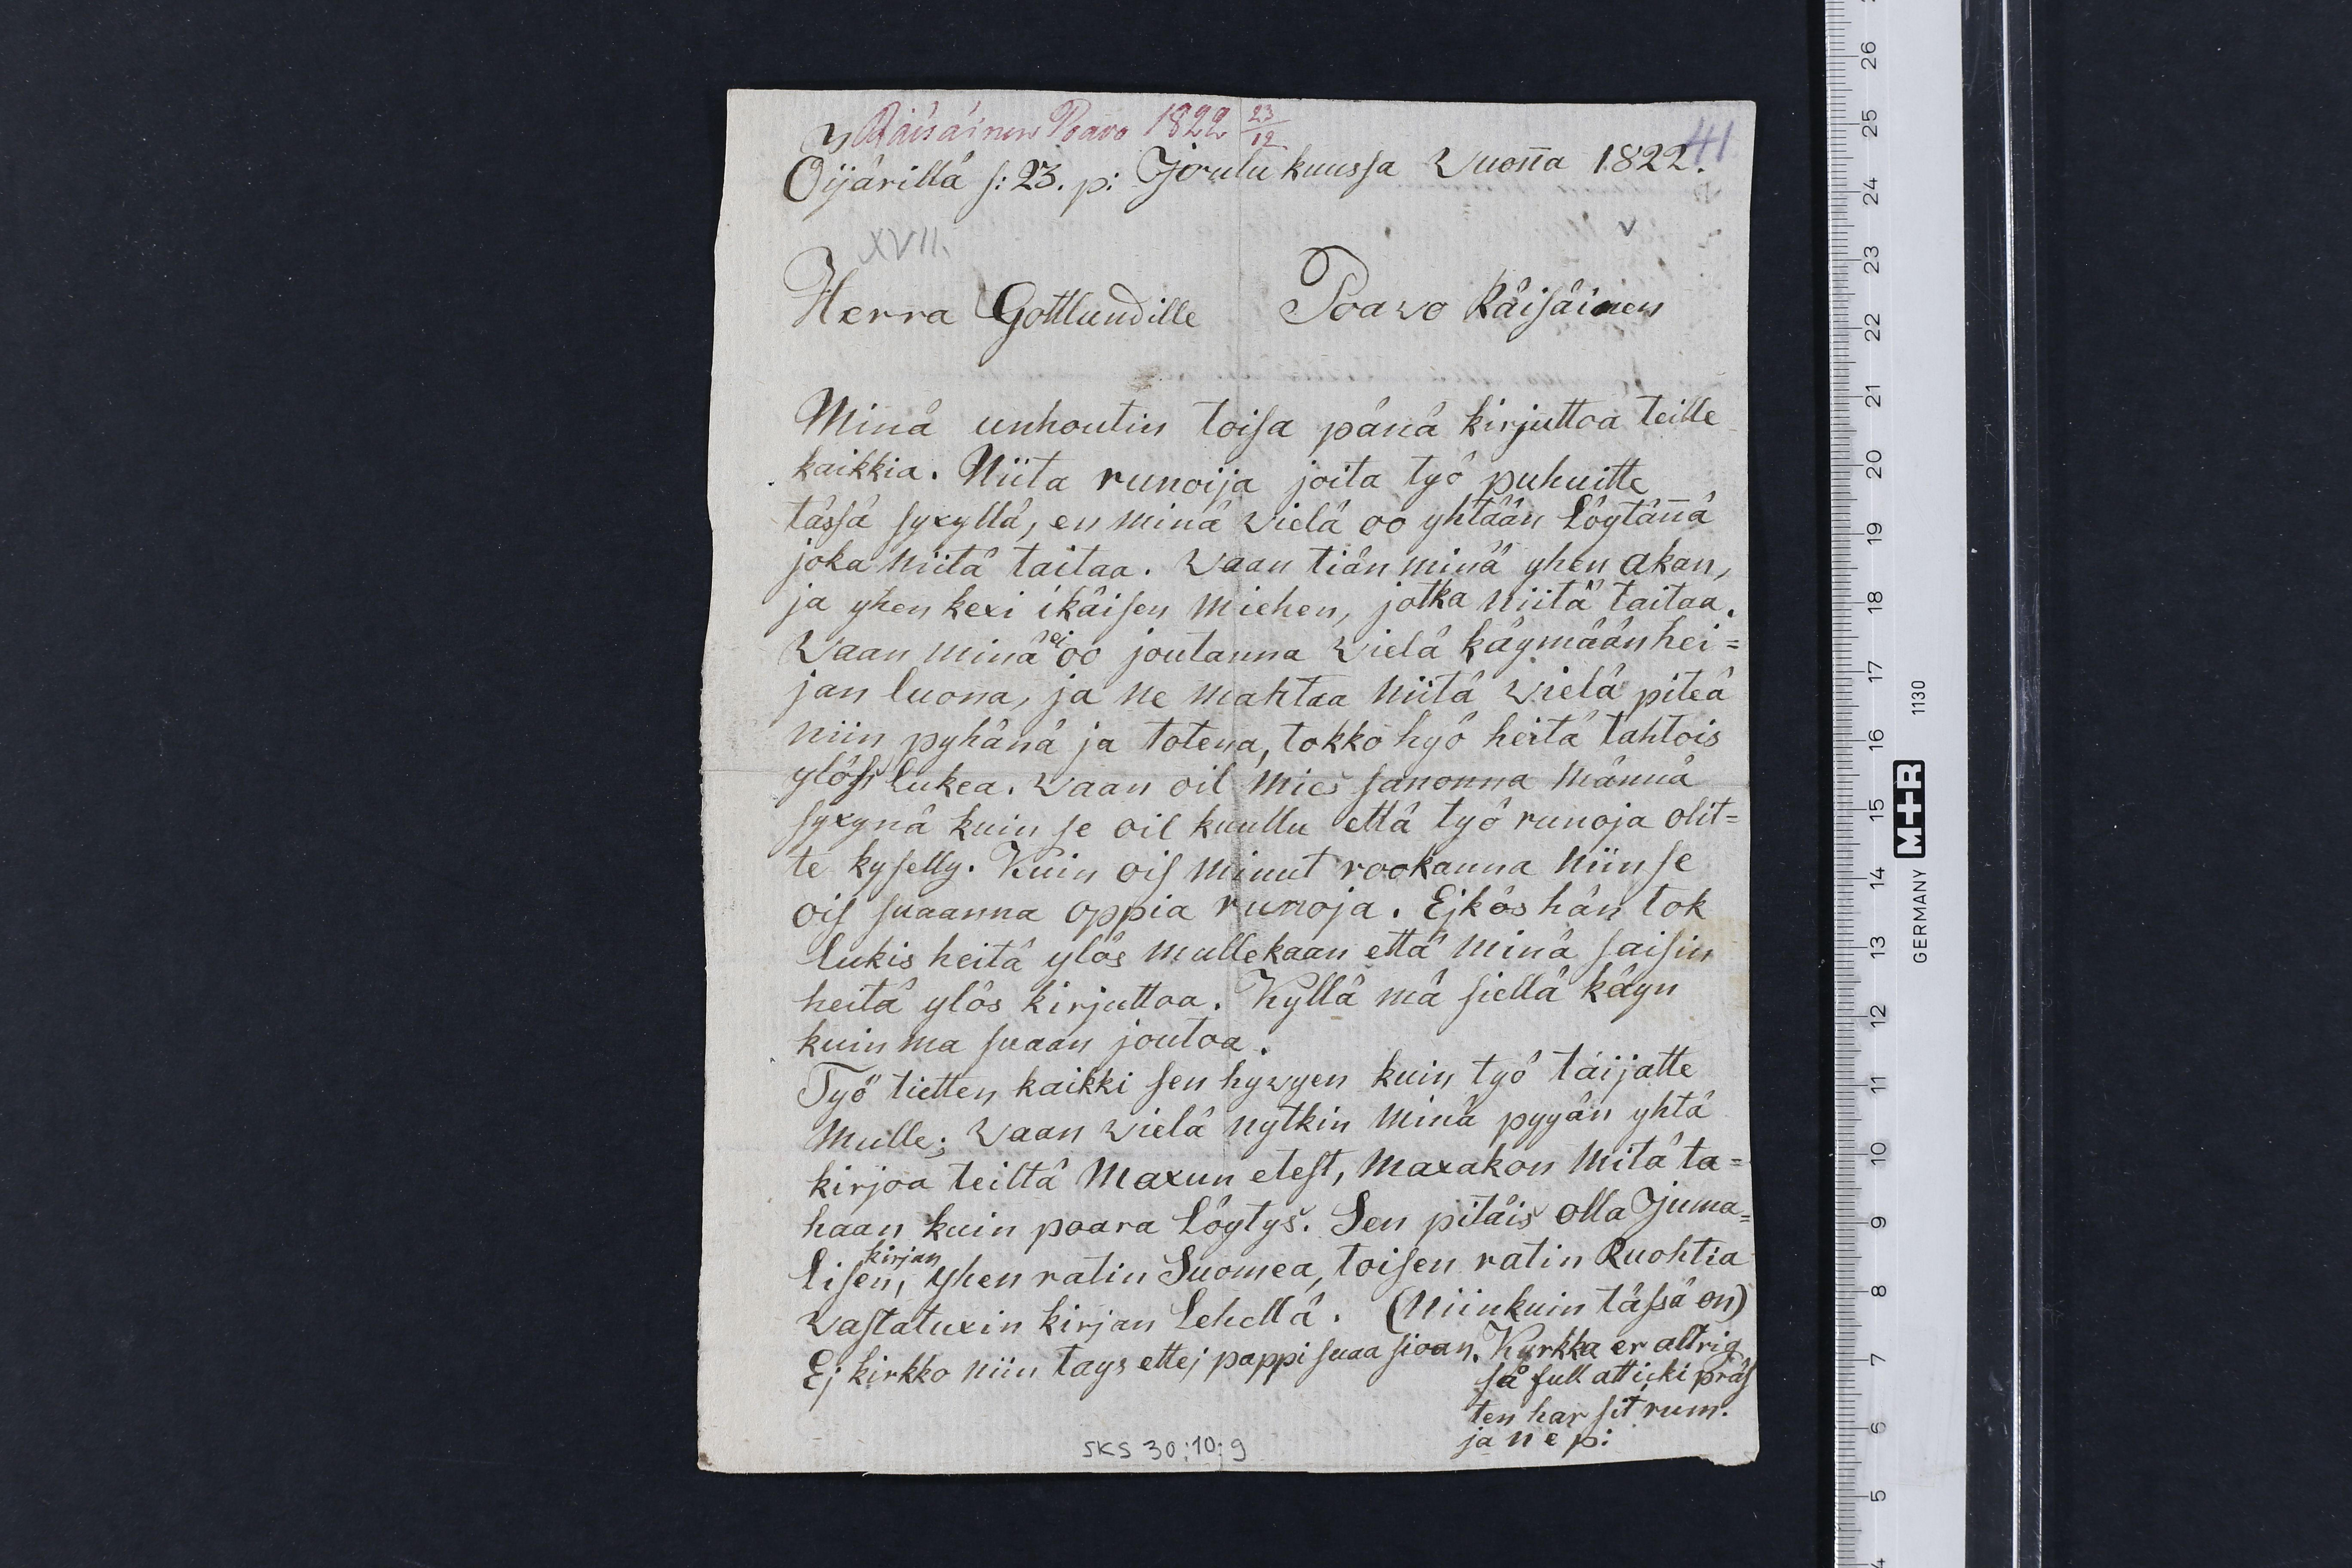 Räisäinen Poavo 1822 23/12
41
Oijärillä s: 23. p: Joulu kuussa Vuon̄a 1822.
XVII.
Herra Gottlundille Poavo Räisäinen
Minä unhoutin toisa pänä kirjuttoa teille
kaikkia. Niita runoija joita työ puhuitte
tässä syxyllä, en minä vielä oo yhtään löytän̄ä
joka niitä taitaa. Vaan tiän minä yhen akan,
ja yhen kexi ikäisen miehen, jotka niitä taitaa.
Vaan minä ei oo joutanna vielä käymään hei=
jan luona, ja ne mahtaa niitä vielä piteä
niin pyhänä ja totena, tokko hyö heitä tahtois
ylös lukea. Vaan oil mies sanonna männä
syxynä kuin se oil kuullu että työ runoja olit=
te kyselly. Kuin ois minut rookanna niin se
ois suaanna oppia runoja. Ejkös hän tok
lukis heitä ylös mullekaan että minä saisin
heitä ylös kirjuttoa. Kyllä mä siellä käyn
kuin ma suaan joutoa.
Työ tietten kaikki sen hyvyen kuin työ täijatte
Mulle; Vaan vielä nytkin minä pyyän yhtä
kirjoa teiltä Maxun etest, Maxakon mitä ta=
haan kuin poara löytys. Sen pitäis olla Juma=
lisen, kirjan yhen ratin Suomea, toisen ratin Ruohtia
vastatuxin kirjan Lehellä. (Niinkuin tässä on)
Ej kirkko niin täys ettej pappi suaa sioan. Kyrkka er altrig
så full att icki präs
ten har sit rum.
ja n e p:
SKS 30:10:9
26
25
24
23
22
21
20
19
18
17
16
15
14
13
12
11
10
9
8
7
6
5
4
GERMANY M+R 1130